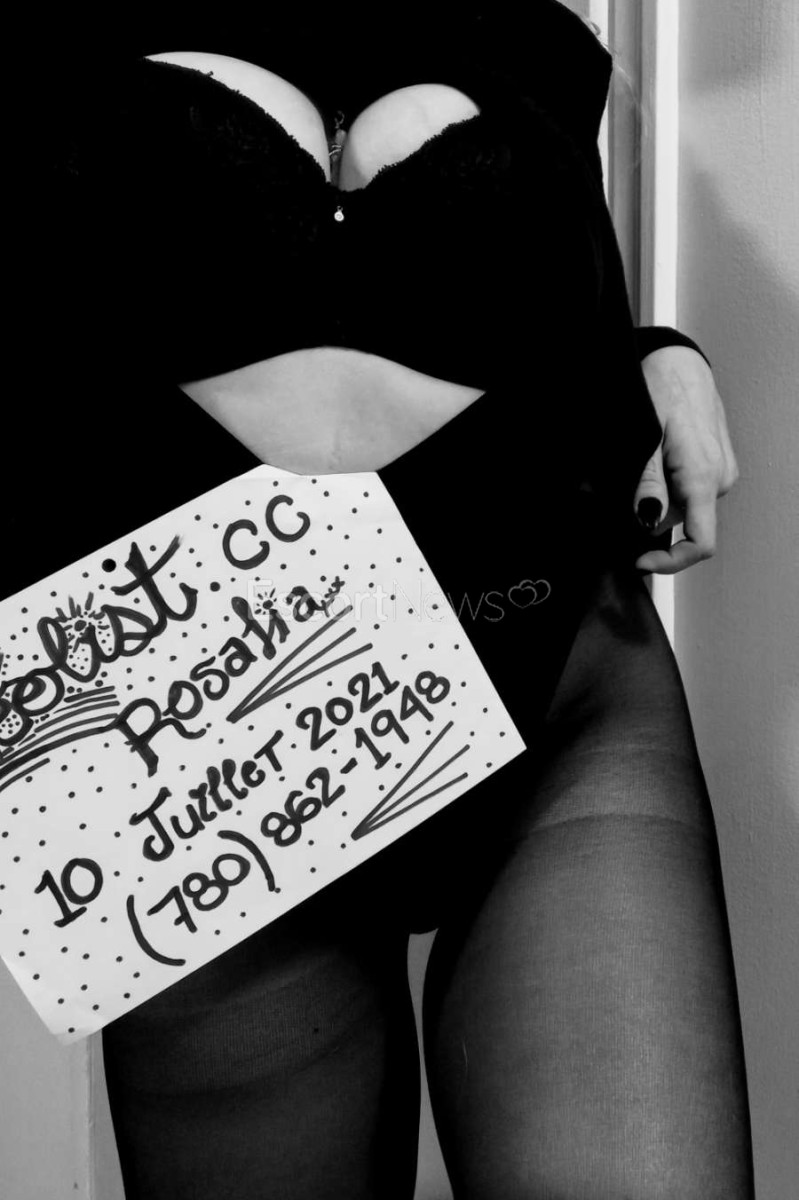 eolist . CC
EscortNews
Rosalia
10 Juillet 2021
(780) 862-1948